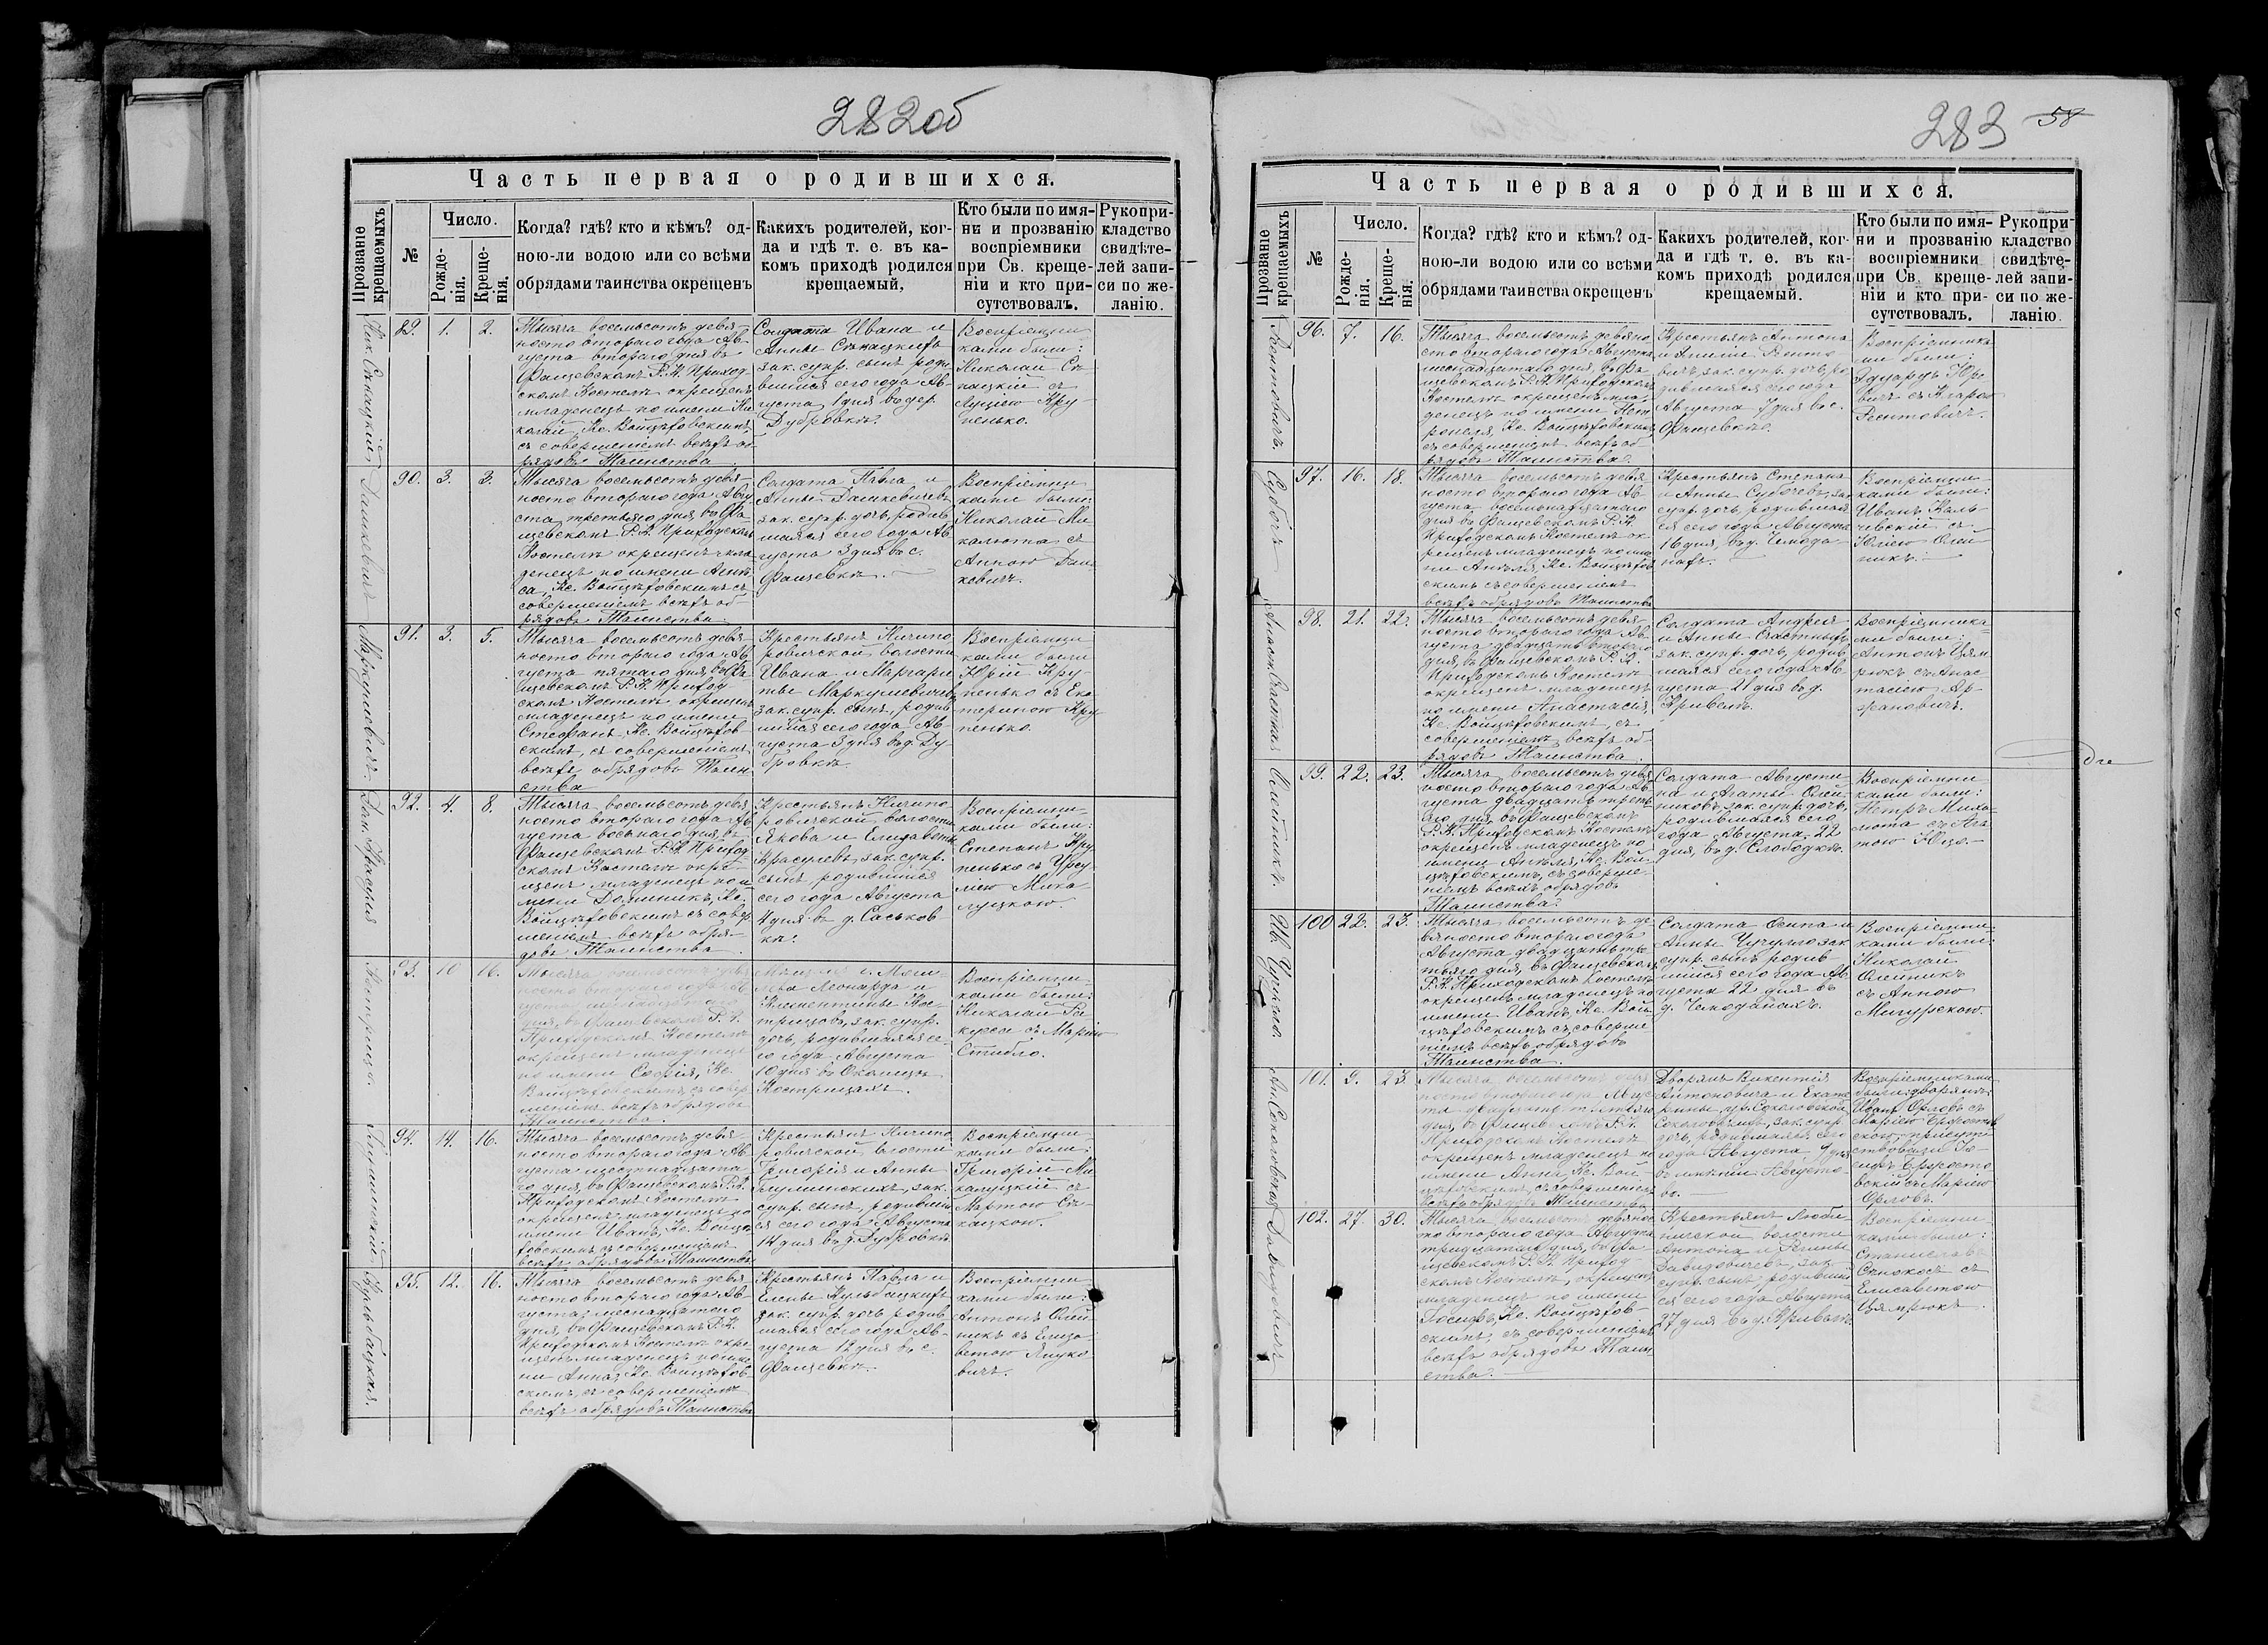 282об
Часть первая о родившихся.
Прозваніе крещаемыхъ
№
Число.
Рожде-
нія.
Креще-
нія.
Когда? гдѣ? кто и кѣмъ? од-
ною-ли водою или со всѣми
обрядами таинства окрещенъ
Какихъ родителей, ког-
да и гдѣ т. е. въ ка-
комъ приходѣ родился
крещаемый.
Кто были по имя-
ни и прозванію
воспріемники
при Св. креще-
ніи и кто при-
сутствовалъ.
Рукопри-
кладство
свидѣте-
лей запи-
си по же-
ланію.
89. 1. 2.
Тысяча восемьсотъ девя-
носто втораго года Ав-
густа втораго дня въ
Фащевскомъ Р. К. Приход-
скомъ Костелѣ окрещенъ
младенецъ по имени Ни-
колай, Кс. Войцѣховскимъ,
съ совершеніемъ всѣхъ об-
рядовъ Таинства
Солдата Ивана и
Анны
зак. супр. сынъ роди-
вшійся сего года Ав-
густа 1 дня въ дер.
Дубровкѣ.
Воспріемни-
ками были:
Николай
съ
Луціею Кру-
пенько.
Дашкевичъ
90. 3. 3.
Тысяча восемьсотъ девя-
носто втораго года Авгу-
ста третьяго дня, въ Фа-
щевскомъ Р. К. Приходскомъ
Костелѣ окрещенъ мла-
денецъ по имени
Кс. Войцѣховскимъ съ
совершеніемъ всѣхъ об-
рядовъ Таинства.
Солдата Павла и
Анны Дашкевичевъ
зак. супр. дочь, родив-
шаяся сего года Ав-
густа 3 дня въ с.
Фащевкѣ.
Воспріемни-
ками были:
Николай Ми-
калюта съ
Анною Даш-
кевичъ.
Маркулевичъ.
91. 3. 5.
Тысяча восемьсотъ девя-
носто втораго года Ав-
густа пятаго дня, въ Фа-
щевскомъ Р. К. Приход-
скомъ Костелѣ окрещенъ
младенецъ по имени
Стефанъ, Кс. Войцѣхов-
скимъ, съ совершеніемъ
всѣхъ обрядовъ Таин-
ства
Крестьянъ Ничипо-
ровичской волости
Ивана и Маргари-
ты Маркулевичевъ
зак. супр. сынъ, родив-
шійся сего года Ав-
густа 3 дня въ д. Ду-
бровкѣ.
Воспріемни-
ками были
Юрій Кру-
пенько съ Ека-
териною Кру-
пенько.
92. 4. 8.
Тысяча восемьсотъ девя-
носто втораго года Ав-
густа восьмаго дня, въ
Фащевскомъ Р. К. Приход-
скомъ Костелѣ окре-
щенъ младенецъ по и-
мени Доминикъ, Кс.
Войцѣховскимъ съ совер-
шеніемъ всѣхъ обря-
довъ Таинства
Крестьянъ Ничипо-
ровичской волости
Якова и Елизаветы
зак. супр.
сынъ, родившійся
сего года Августа
4 дня въ д. Саськов-
кѣ.
Воспріемни-
ками были:
Степанъ Кру-
пенько съ Урсу-
лею Мика-
луцкою.
Кострица.
93. 10 16.
Тысяча восемьсотъ девя-
носто втораго года Ав-
густа шестнадцатаго
дня, въ Фащевскомъ Р. К.
Приходскомъ Костелѣ
окрещенъ младенецъ
по имени Софія, Кс.
Войцѣховскимъ, съ совер-
шеніемъ всѣхъ обрядовъ
Таинства.
Мѣщанъ г. Моги-
лева Леонарда и
Клементины Кос-
трицовъ, зак. супр.
дочь, родившаяся се-
го года Августа
10 дня въ Околицѣ
Кострицахъ.
Воспріемни-
ками были:
Николай
съ Маріею
Стибло.
94. 14. 16.
Тысяча восемьсотъ девя-
носто втораго года Ав-
густа шестнадцата-
го дня, въ Фащевскомъ Р. К.
Приходскомъ Костелѣ
окрещенъ младенецъ по
имени Иванъ, Кс. Войцѣ-
ховскимъ, съ совершеніемъ
всѣхъ обрядовъ Таинства
Крестьянъ Ничипо-
ровичской волости
Григорія и Анны
зак.
супр. сынъ, родивший-
ся сего года Августа
14 дня въ д. Дубровкѣ
Воспріемни-
ками были:
Григорій Ми-
калуцкій съ
Мартою
Кульбацкая.
95. 12. 16.
Тысяча восемьсотъ девя-
носто втораго года Ав-
густа шеснадцатаго
дня, въ Фащевскомъ Р. К.
Приходскомъ Костелѣ окре-
щенъ младенецъ по име-
ни Анна, Кс. Войцѣхов-
скимъ, съ совершеніемъ
всѣхъ обрядовъ Таинства
Крестьянъ Павла и
Елены Кульбацкихъ
зак. супр. дочь родив-
шаяся сего года Ав-
густа 12 дня въ с.
Фащевкѣ.
Воспріемни-
ками были:
Антонъ Олей-
никъ съ Елиза-
ветою Яцко-
вичъ.
283 58
Часть первая о родившихся.
Прозваніе крещаемыхъ
№
Число.
Рожде-
нія.
Креще-
нія.
Когда? гдѣ? кто и кѣмъ? од-
ною-ли водою или со всѣми
обрядами таинства окрещенъ
Какихъ родителей, ког-
да и гдѣ т. е. въ ка-
комъ приходѣ родился
крещаемый.
Кто были по имя-
ни и прозванію
воспріемники
при Св. креще-
ніи и кто при-
сутствовалъ.
Рукопри-
кладство
свидѣте-
лей запи-
си по же-
ланію.
96. 7. 16.
Тысяча восемьсотъ девяно-
сто втораго года Августа
шеснадцатаго дня, въ Фа-
щевскомъ Р. К. Приходскомъ
Костелѣ окрещенъ мла-
денецъ по имени Пет-
ронеля, Кс. Войцѣховскимъ,
съ совершеніемъ всѣхъ об-
рядовъ Таинства.
Крестьянъ Антона
зак. супр. дочь, ро-
дившаяся сего года
Августа 7 дня въ с.
Фащевкѣ.
Воспріемника-
ми были:
Эдуардъ Юре-
вичъ съ Кларою
Субочъ
97. 16. 18.
Тысяча восемьсотъ девя-
носто втораго года Ав-
густа восемьнадцатаго
дня въ Фащевскомъ Р. К.
Приходскомъ Костелѣ ок-
рещенъ младенецъ по име-
ни Анѣля, Кс. Войцѣхов-
скимъ съ совершеніемъ
всѣхъ обрядовъ Таинства
Крестьянъ Степана
и Анны Субочевъ, зак.
супр. дочь родившая-
ся сего года Августа
16 дня, въ д. Чемода-
нахъ.
Воспріемни-
ками были:
Иванъ Каль-
чевскій съ
Юліею Олей-
никъ.
98. 21. 22.
Тысяча восемьсотъ девя-
носто втораго года Ав-
густа двадцать втораго
дня, въ Фащевскомъ Р. К.
Приходскомъ Костелѣ
окрещенъ младенецъ
по имени Анастасія,
Кс. Войцѣховскимъ, съ
совершеніемъ всѣхъ об-
рядовъ Таинства
Солдата Андрея
и Анны Счастныхъ
зак. супр. дочь, родив-
шаяся сего года Ав-
густа 21 дня въ д.
Воспріемника-
ми были:
Антонъ Цям-
рюкъ съ Анас-
тасіею Ар-
жановичъ.
Олейникъ.
99. 22. 23.
Тысяча восемьсотъ девя-
носто втораго года Ав-
густа двадцать треть-
его дня, въ Фащевскомъ
Р. К. Приходскомъ Костелѣ
окрещенъ младенецъ по
имени Анѣля, Кс. Вой-
цѣховскимъ, съ соверше-
ніемъ всѣхъ обрядовъ
Таинства.
Солдата Августи-
на и Агаты Олей-
никовъ, зак. супр. дочь,
родившаяся сего
года Августа 22
дня, въ д. Слободкѣ.
Воспріемни-
ками были:
Петръ Мика-
люта съ Ага-
тою
100 22. 23.
Тысяча восемьсотъ де-
вяносто втораго года
Августа двадцать тре-
тьяго дня, въ Фащевскомъ
Р. К. Приходскомъ Костелѣ
окрещенъ младенецъ по
имени Иванъ, Кс. Вой-
цѣховскимъ съ соверше-
ніемъ всѣхъ обрядовъ
Таинства.
Солдата Осипа и
Анны зак.
супр. сынъ родив-
шійся сего года Ав-
густа 22 дня въ
д. Чемоданахъ.
Воспріемни-
ками были:
Николай
Олейникъ
съ Анною
Мигурскою.
Ан. Соколовская
101. 9. 23.
Тысяча восемьсотъ девя-
носто втораго года Авгус-
та двадцать третьяго
дня, въ Фащевскомъ Р. К.
Приходскомъ Костелѣ
окрещенъ младенецъ по
имени Анна, Кс. Вой-
цѣховскимъ, съ совершеніемъ
всѣхъ обрядовъ Таинства
Дворянъ Викентія
Антоновича и Екате-
рины,
зак. супр.
дочь, родившаяся сего
года Августа 9 дня
въ имѣніи Августо-
Воспріемниками
были дворяне:
Иванъ Орловъ съ
Маріею
скою, присут-
ствовали Іо-
сифъ
съ Маріею
Орловъ.
Давыдовичъ
102. 27. 30.
Тысяча восемьсотъ девянос-
то втораго года Августа
тридцатаго дня, въ Фа-
щевскомъ Р. К. Приход-
скомъ Костелѣ, окрещенъ
младенецъ по имени
Іосифъ, Кс. Войцѣхов-
скимъ, съ совершеніемъ
всѣхъ обрядовъ Таин-
ства.
Крестьянъ Люби-
ничской волости
Антона и Регины
Давидовичевъ, зак.
супр. сынъ родивший-
ся сего года Августа
27 дня въ д.
Воспріемни-
ками были:
Станиславъ
съ
Елисаветою
Цямрюкъ.